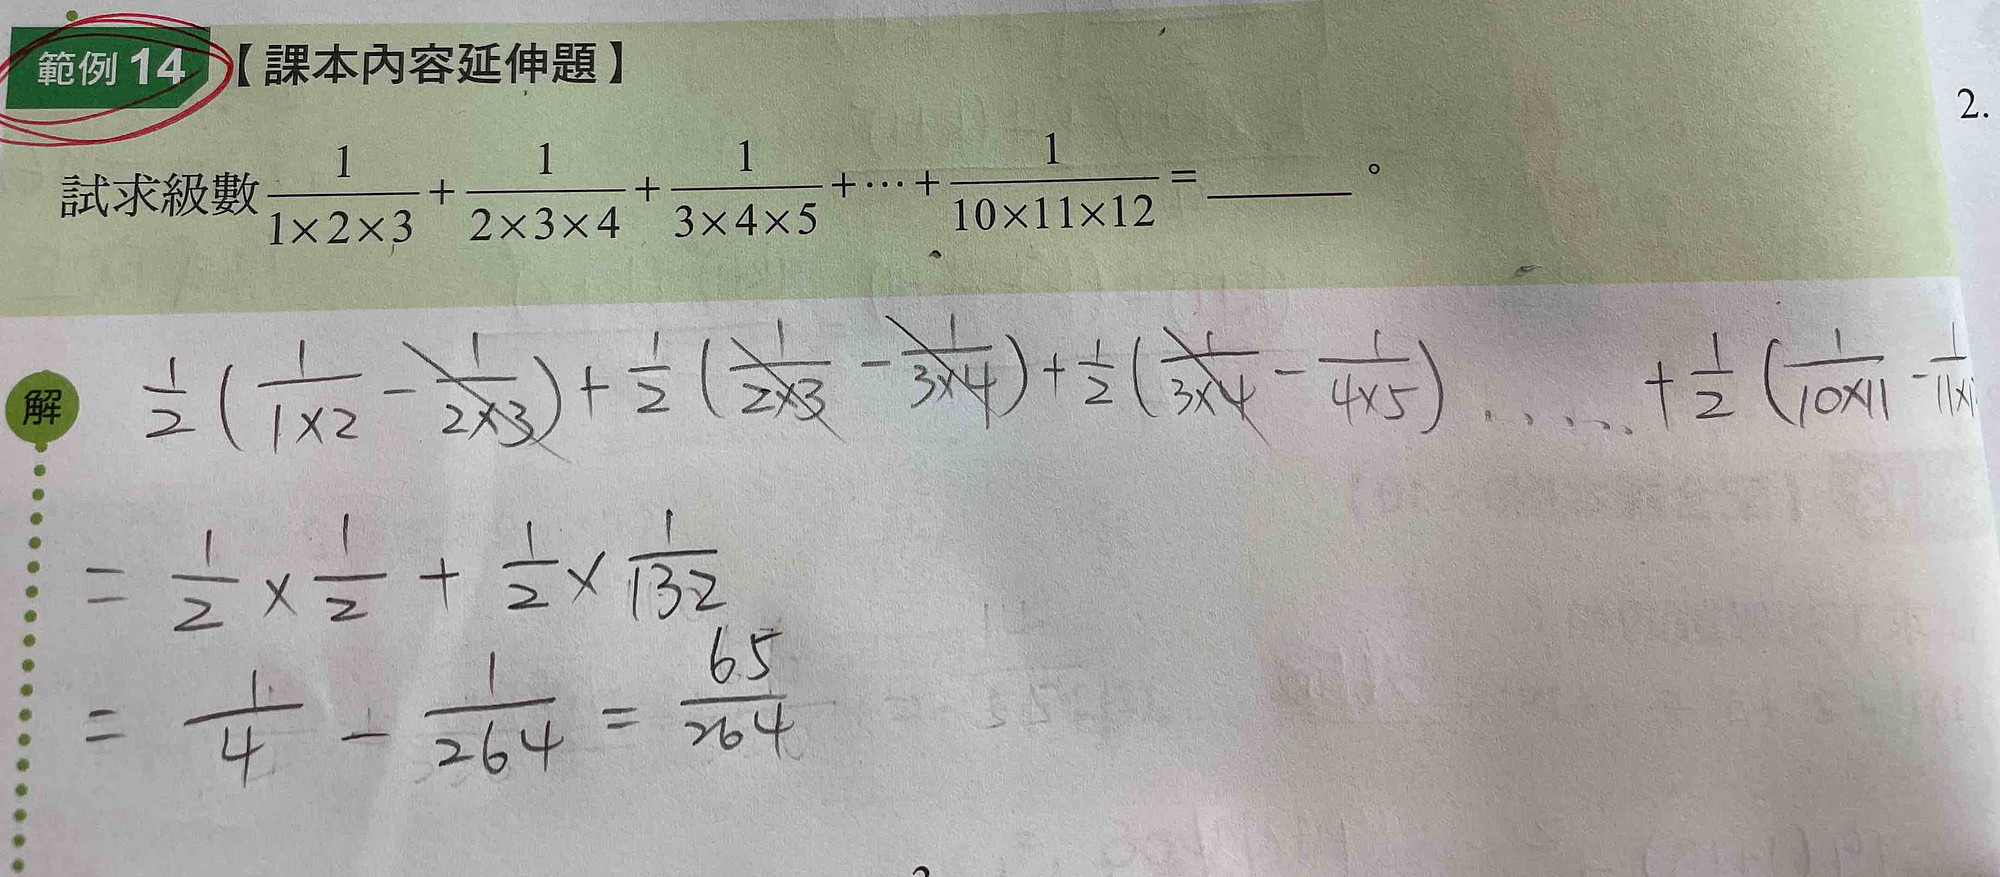 範例 14 【課本內容延伸題】
2.
試求級數 1/(1×2×3) + 1/(2×3×4) + 1/(3×4×5) +⋯+ 1/(10×11×12) = ______ 。
解 1/2 ( 1/(1×2) - 1/(2×3) ) + 1/2 ( 1/(2×3) - 1/(3×4) ) + 1/2 ( 1/(3×4) - 1/(4×5) ) ...... + 1/2 ( 1/(10×11) - 1/(11×1
= 1/2 × 1/2 + 1/2 × 1/132
= 1/4 - 1/264 = 65/264